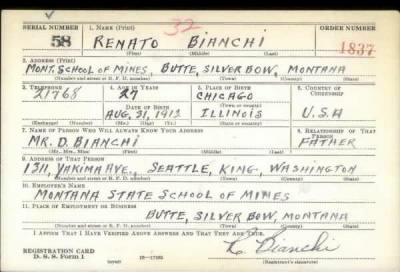 SERIAL NUMBER 1. NAME (Print) 32 ORDER NUMBER
58 RENATO BIANCHI 1837
(First) (Middle) (Last)
2. ADDRESS (Print)
MONT. SCHOOL OF MINES, BUTTE, SILVER BOW, MONTANA
(Number and street or R. F. D. number) (Town) (County) (State)
3. TELEPHONE 4. AGE IN YEARS 5. PLACE OF BIRTH 6. COUNTRY OF CITIZENSHIP
21768 27 CHICAGO
DATE OF BIRTH (Town or county)
AUG. 31, 1912 ILLINOIS U.S.A
(Exchange) (Number) (Mo.) (Day) (Yr.) (State or country)
7. NAME OF PERSON WHO WILL ALWAYS KNOW YOUR ADDRESS 8. RELATIONSHIP OF THAT PERSON
MR. D. BIANCHI FATHER
(Mr., Mrs., Miss) (First) (Middle) (Last)
9. ADDRESS OF THAT PERSON
1311, YAKIMA AVE., SEATTLE, KING, WASHINGTON
(Number and street or R. F. D. number) (Town) (County) (State)
10. EMPLOYER'S NAME
MONTANA STATE SCHOOL OF MINES
11. PLACE OF EMPLOYMENT OR BUSINESS
BUTTE, SILVER BOW, MONTANA
(Number and street or R. F. D. number) (Town) (County) (State)
I AFFIRM THAT I HAVE VERIFIED ABOVE ANSWERS AND THAT THEY ARE TRUE.
REGISTRATION CARD R. Bianchi
D. S. S. Form 1 (over) (Registrant's signature)